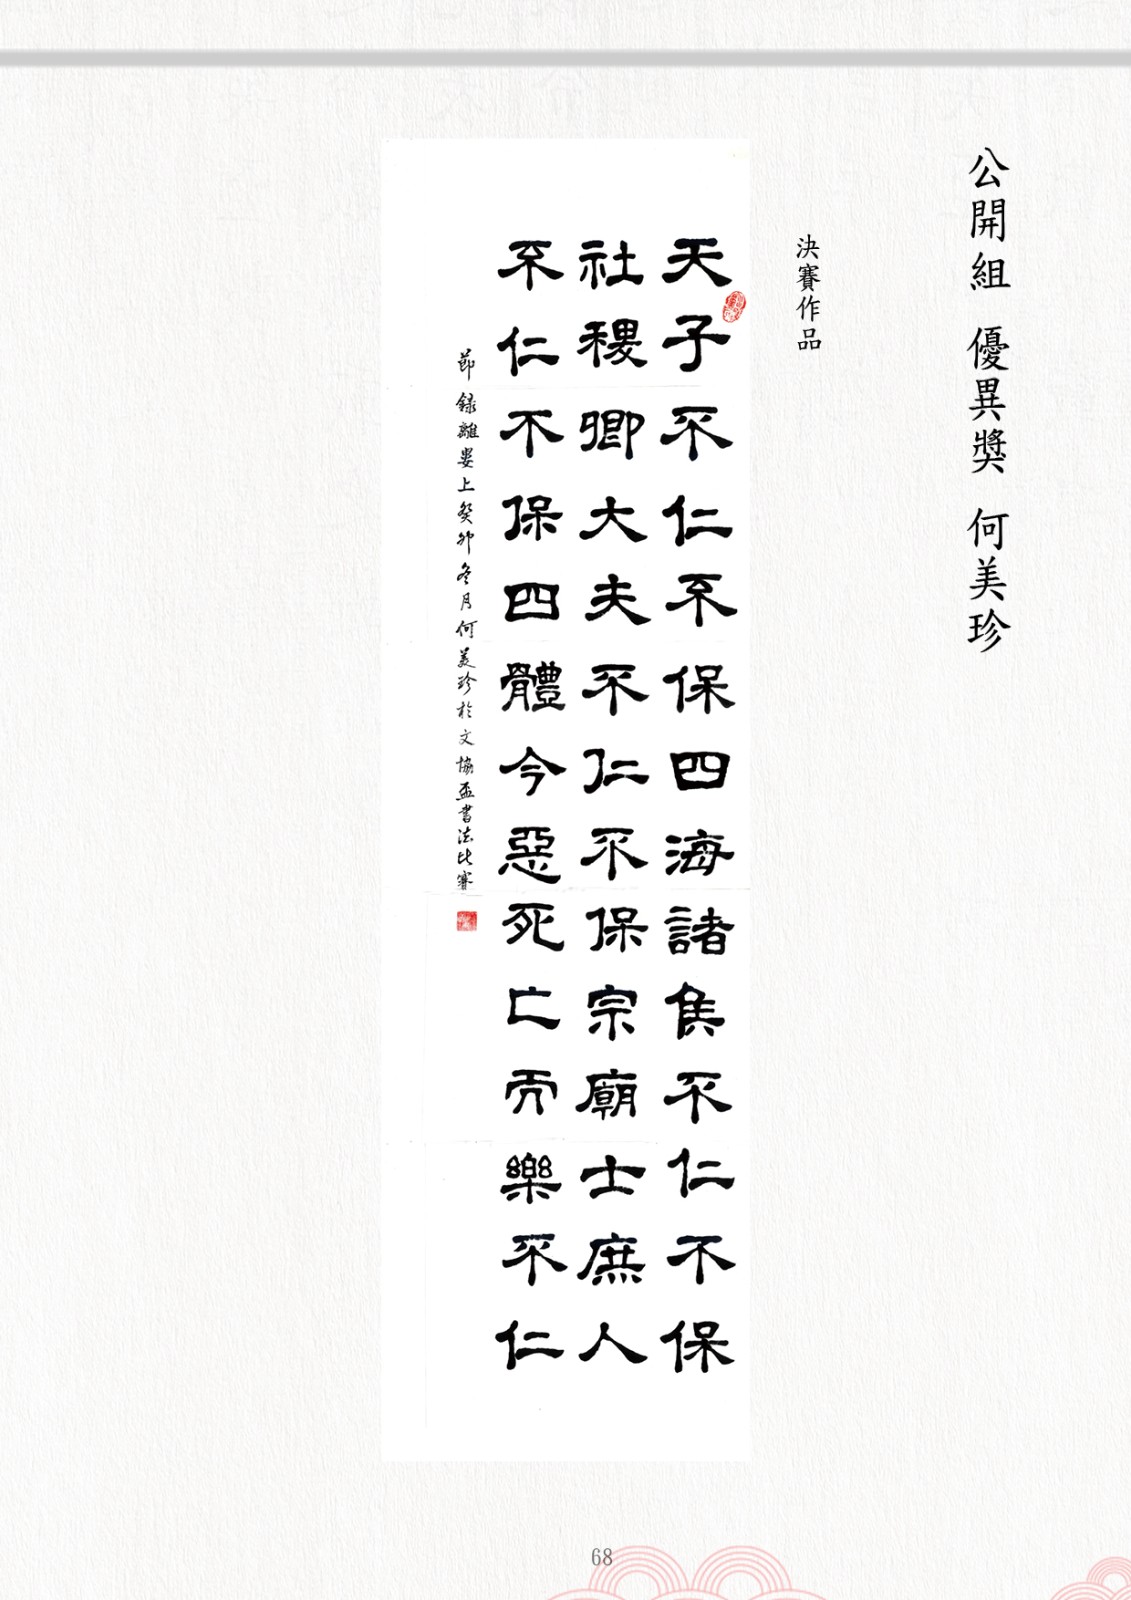 公開組 優異獎 何美珍
決賽作品
天子不仁不保四海諸侯不仁不保
社稷卿大夫不仁不保宗廟士庶人
不仁不保四體今惡死亡而樂不仁
節錄離婁上癸卯冬月何美珍於文協盃書法比賽
68